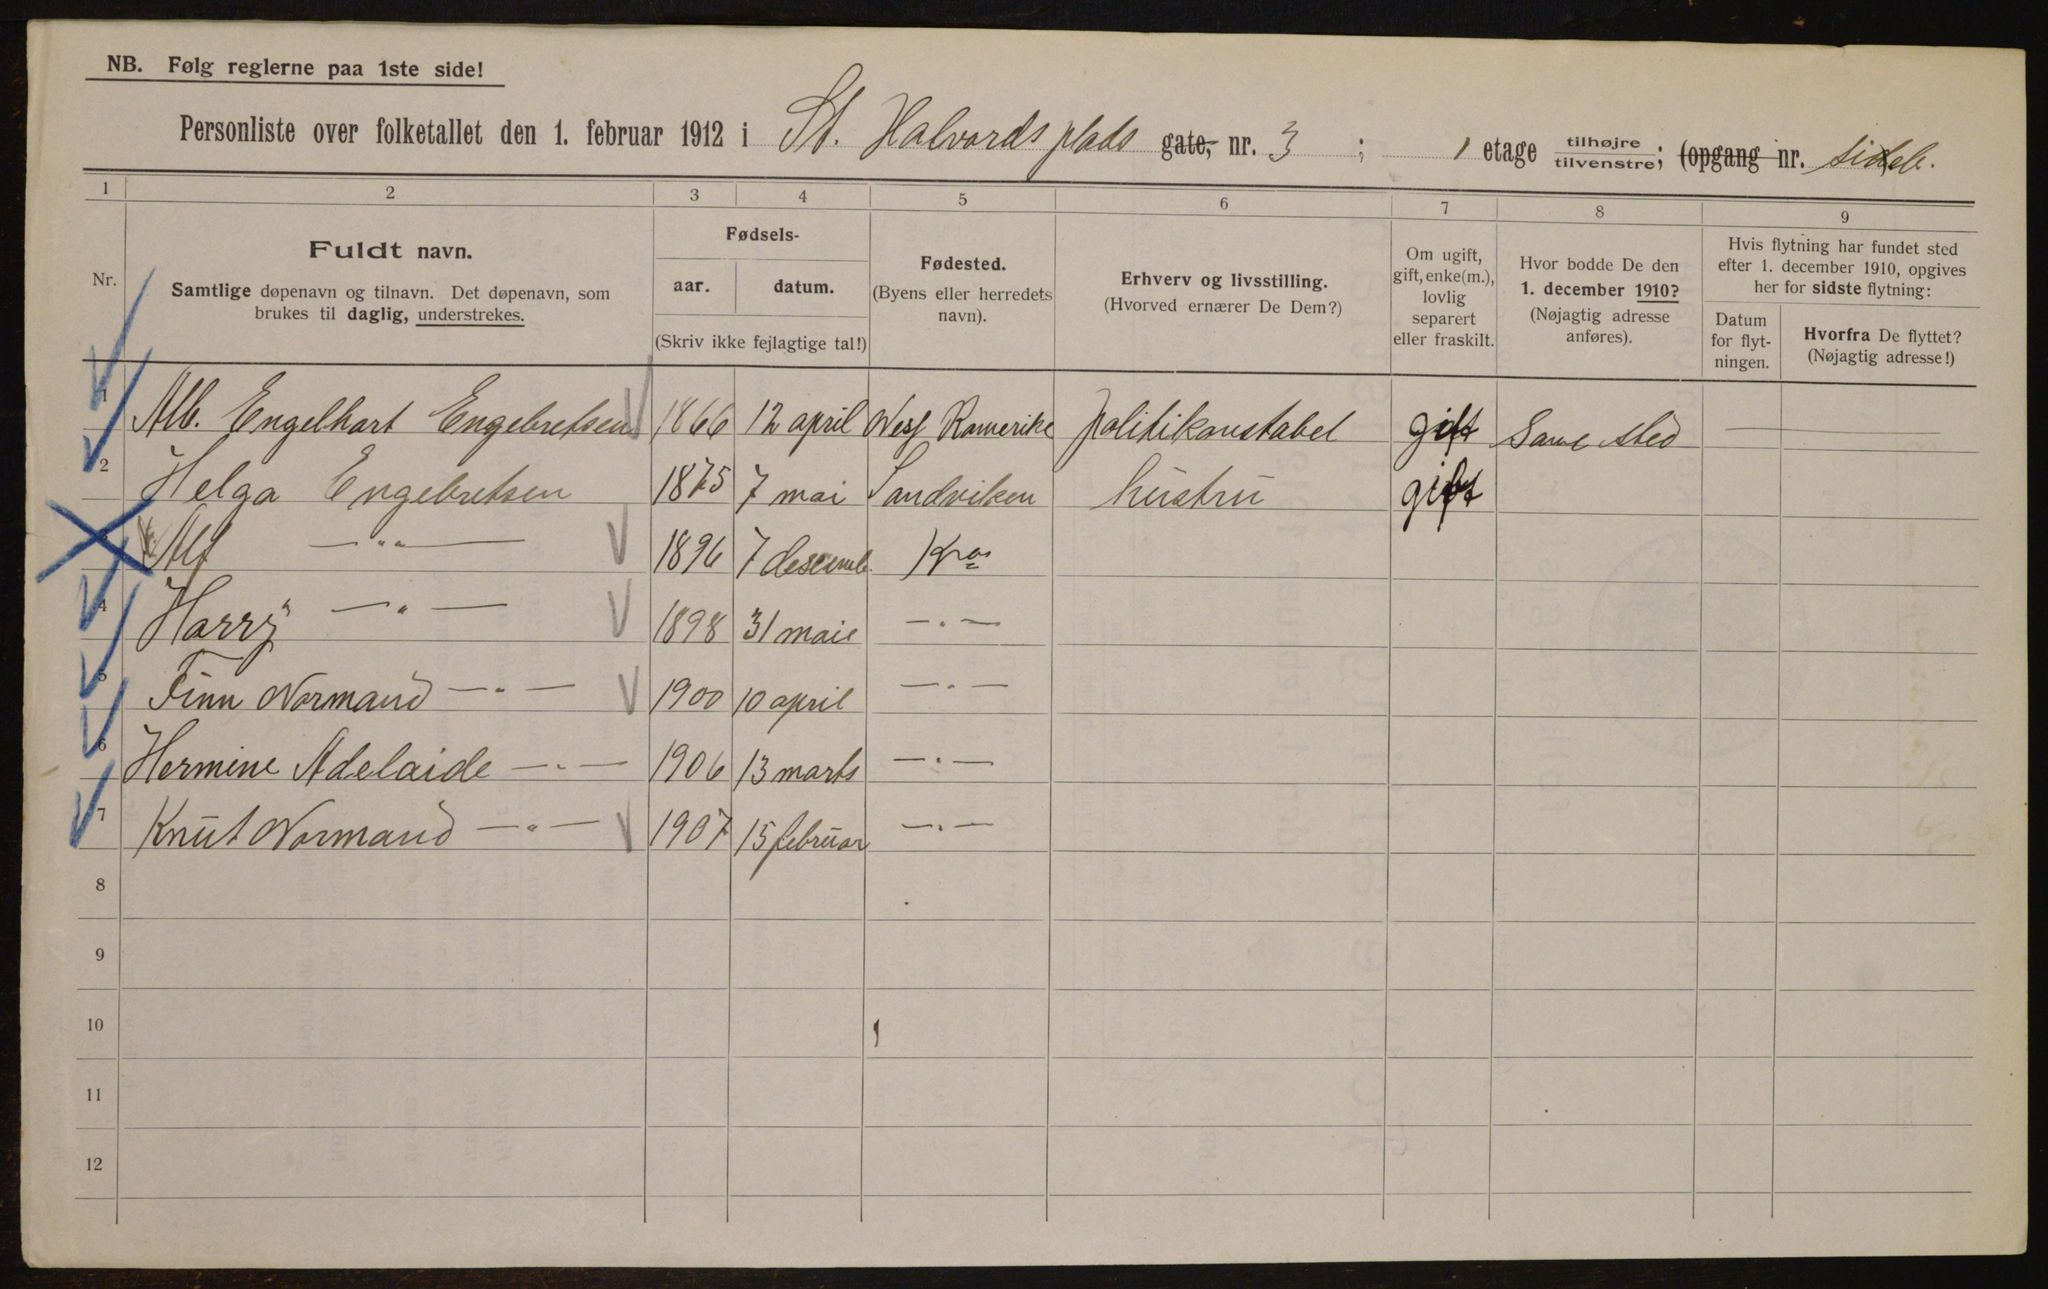 NB. Følg reglerne paa 1ste side!
Personliste over folketallet den 1. februar 1912 i St. Halvards plads gate, nr. 3 ; 1 etage tilhøjre tilvenstre; (opgang nr.
1 2 3 4 5 6 7 8 9
Nr.
Fuldt navn.
Samtlige døpenavn og tilnavn. Det døpenavn, som
brukes til daglig, understrekes.
Fødsels-
aar. datum.
(Skriv ikke fejlagtige tal!)
Fødested.
(Byens eller herredets
navn).
Erhverv og livsstilling.
(Hvorved ernærer De Dem?)
Om ugift,
gift, enke(m.),
lovlig
separert
eller fraskilt.
Hvor bodde De den
1. december 1910?
(Nøjagtig adresse
anføres).
Hvis flytning har fundet sted
efter 1. december 1910, opgives
her for sidste flytning:
Datum
for flyt-
ningen.
Hvorfra De flyttet?
(Nøjagtig adresse!)
1 Alb. Engelhart Engebretsen 1866 12 april Vest Romerike politikonstabel gift Same sted
2 Helga Engebretsen 1875 7 mai Sandviken hustru gift
3 Alf — „ — 1896 7 desemb. Kra
4 Harry — „ — 1898 31 maie — „ —
5 Finn Normand — „ — 1900 10 april — „ —
6 Hermine Adelaide — „ — 1906 13 marts — „ —
7 Knut Normand — „ — 1907 15 februar — „ —
8
9
10
11
12